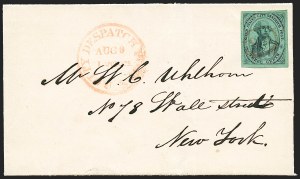 CITY DESPATCH POST
AUG 9
Mr W. C. Uhlhorn
No 78 Wall street
New York.